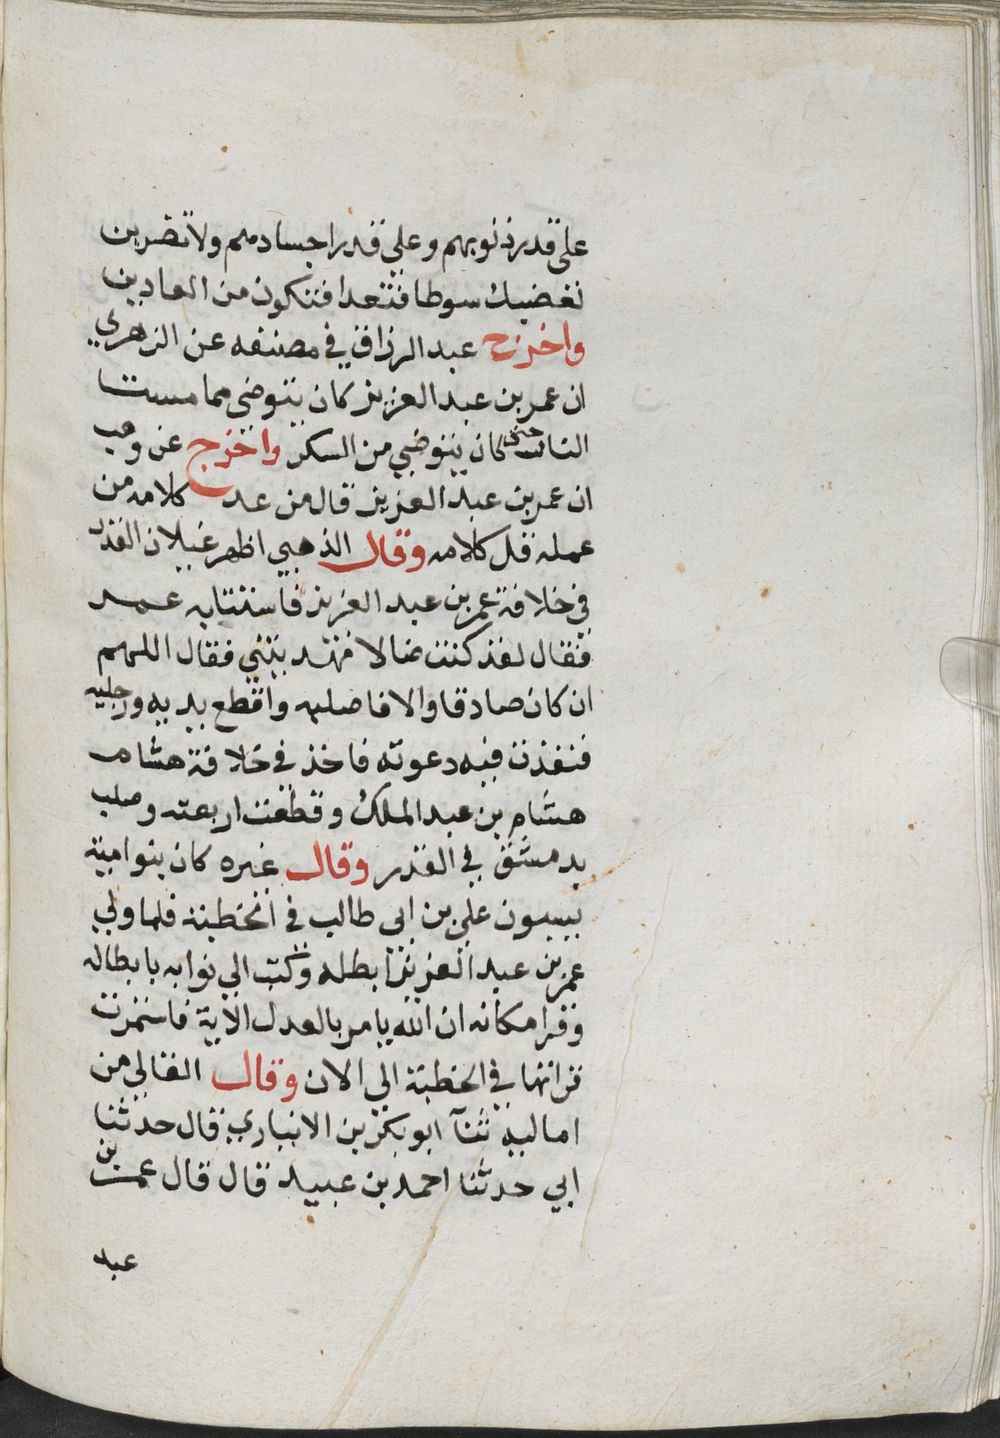 على قدر ذنوبهم وعلى قدر اجسادهم ولا تضربن
لغضبك سوطا فتتعدا فتكون من العادين
واخرج عبد الرزاق في مصنفه عن الزهري
ان عمر بن عبد العزيز كان يتوضى مما مست
النار حتى كان يتوضي من السكر واخرج عن وهب
ان عمر بن عبد العزيز قال من عد كلامه من
عمله قل كلامه وقال الذهبي اظهر غيلان القدر
في خلافة عمر بن عبد العزيز فاستتابه عمر
فقال لقد كنت ضالا فهديتني فقال اللهم
ان كان صادقا والا فاصلبه واقطع يديه ورجليه
فنفذت فيه دعوته فاخذ في خلافة هشام
هشام بن عبد الملك وقطعت اربعته وصلب
بدمشق في القدر وقال غيره كان بنو امية
يسبون علي بن ابى طالب في الخطبة فلما ولي
عمر بن عبد العزيز ابطله وكتب الي نوابه بابطاله
وقرا مكانه ان الله يامر بالعدل الآية فاستمرت
قراتها في الخطبة الى الان وقال القالي من
اماليه ثنآ ابو بكر بن الانباري قال حدثنا
ابي حدثنا احمد بن عبيد قال قال عمر بن
عبد